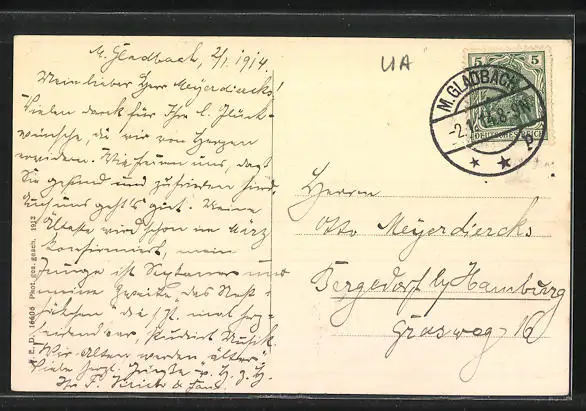 M. Gladbach, 2/1. 1914.
Mein lieber Herr Meyerdiercks!
Vielen Dank für Ihre l. Glück-
wünsche, die wir von Herzen
erwidern. Wir freuen uns, daß
Sie gesund und zufrieden sind,
auch uns geht's gut. Meine
Älteste wird schon im März
konfirmiert, mein
Junge ist Septaner und
meine Zweite "das Nest-
häkchen" die
studiert Musik.
Wir Alten werden "älter".
Viele herzl. Grüße v. H. z. H.
Ihr F.
UA
5 5
DEUTSCHES REICH
M. GLADBACH
-2.1.14.8-9N
* * P
Herrn
Otto Meyerdiercks
Bergedorf b/Hamburg
Grasweg 16
P. E. D. 16606 Phot. ges. gesch. 1913